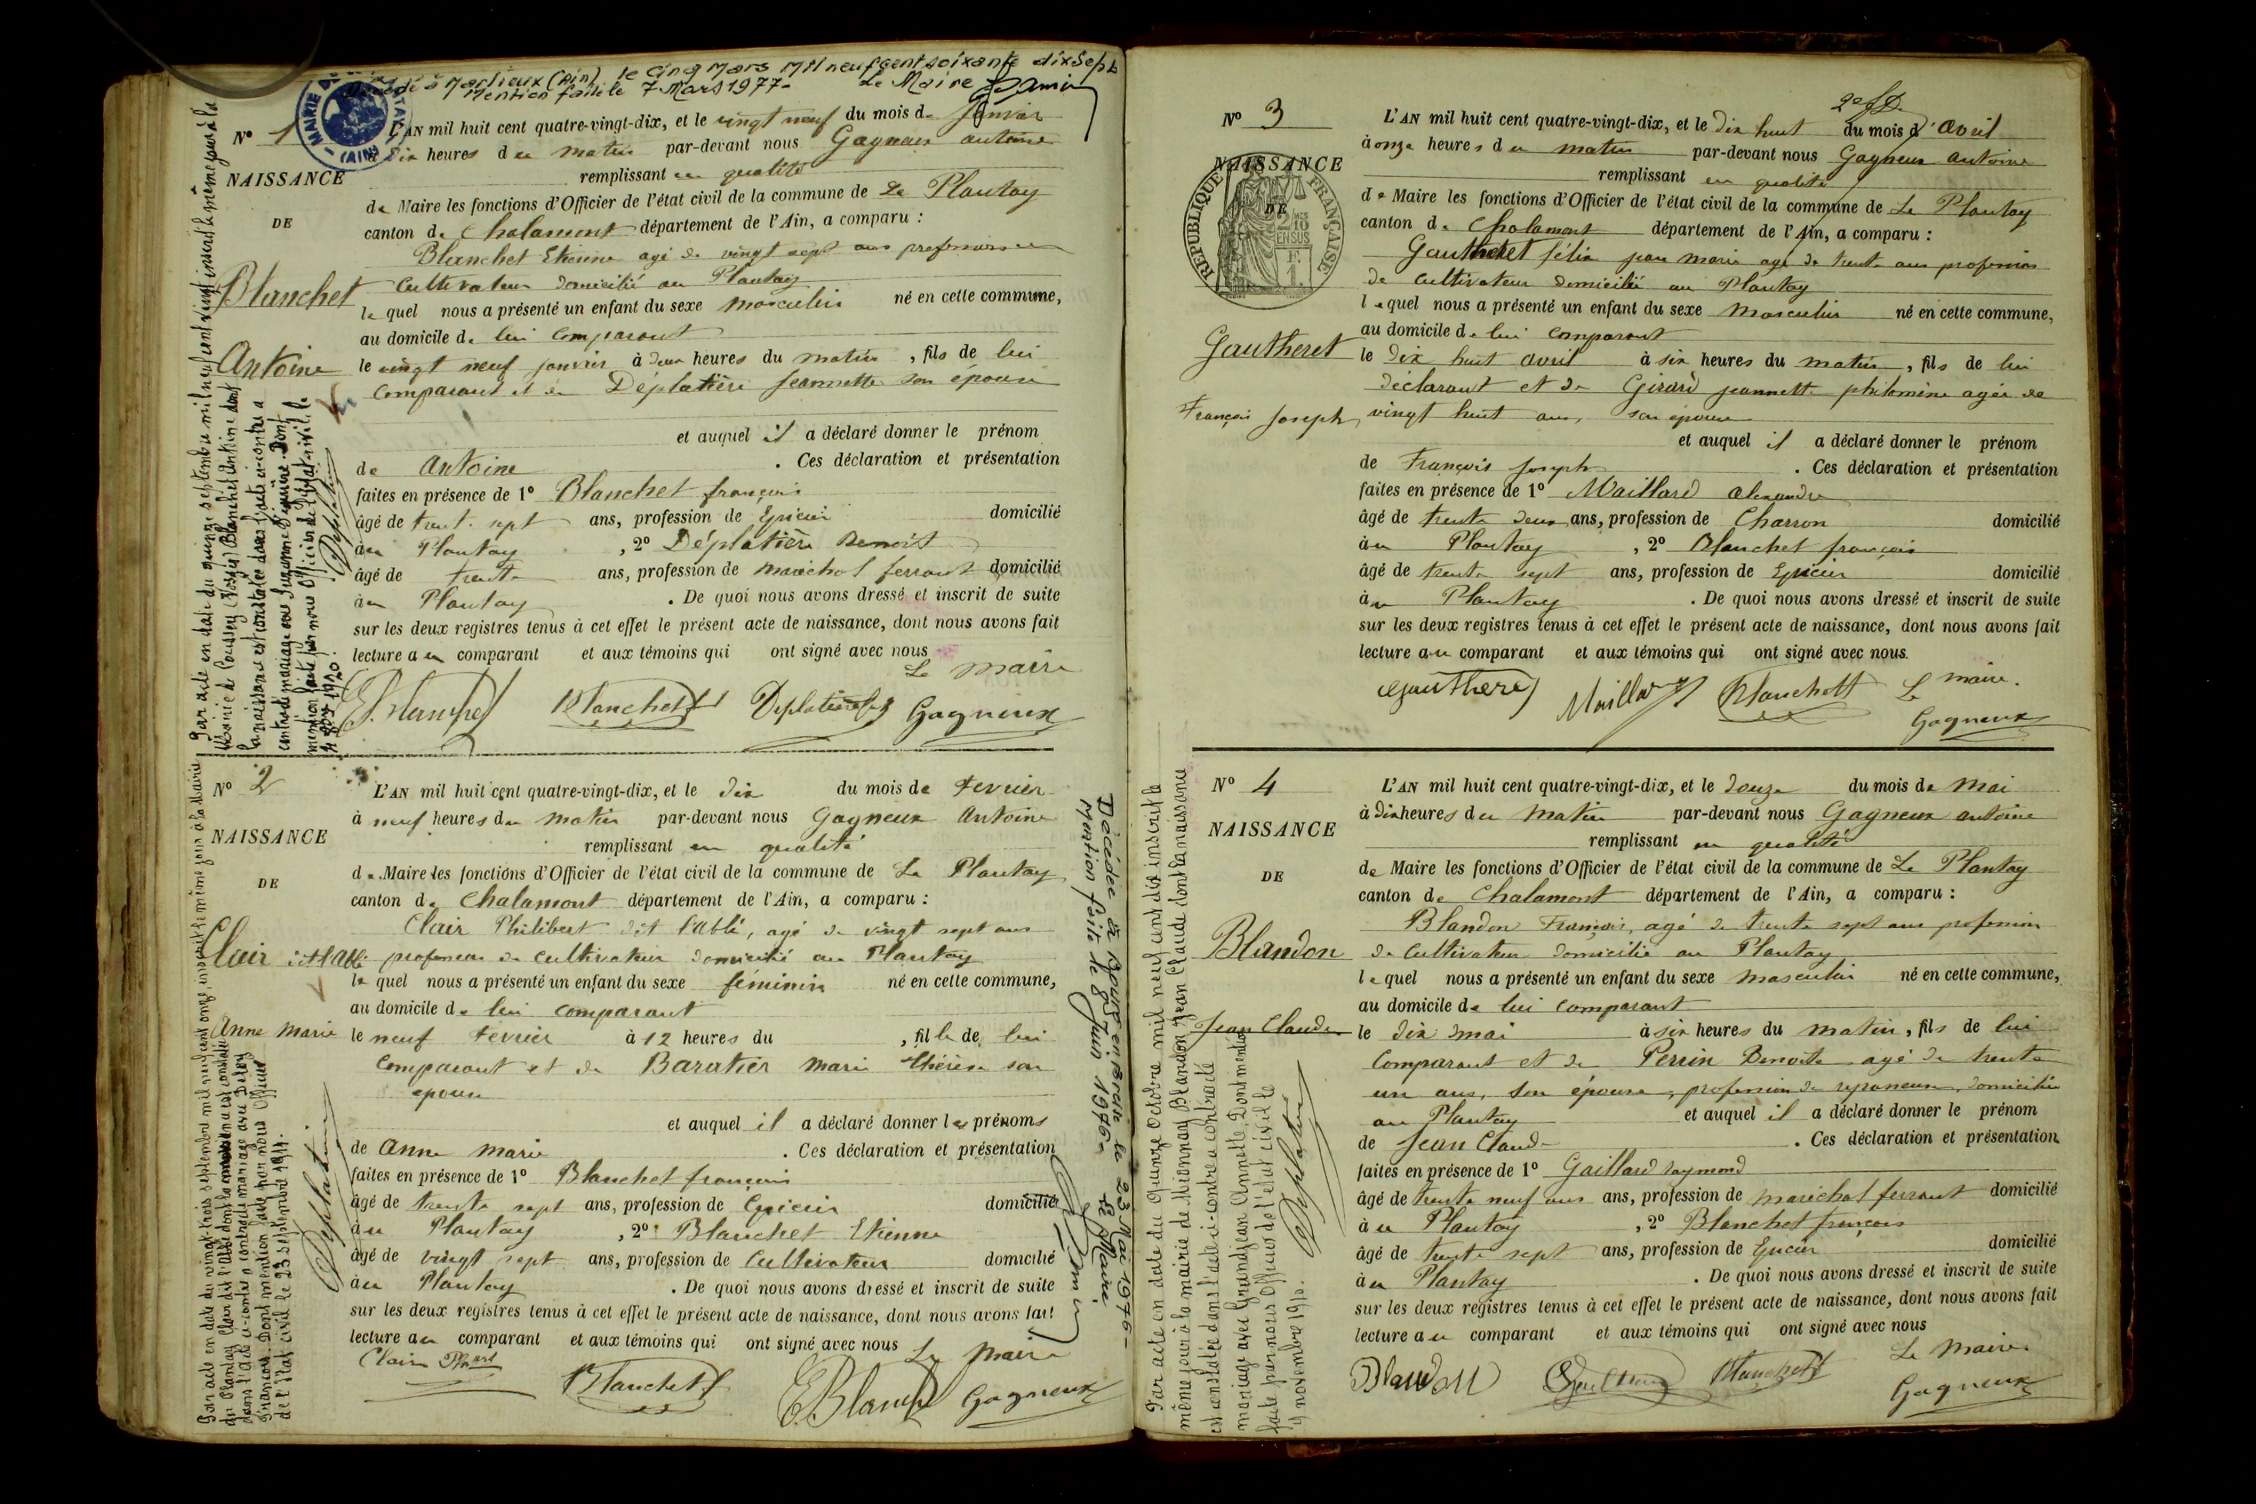 Décédé à Marlieux (Ain) le cinq Mars Mil neuf cent soixante dix sept
Mention faite le 7 Mars 1977 - Le Maire
MAIRIE (AIN)
N° 1
NAISSANCE
DE
Blanchet
Antoine
L'AN mil huit cent quatre-vingt-dix, et le vingt neuf du mois de Janvier
à Dix heures du matin par-devant nous Gagneux antoine
remplissant en qualité
de Maire les fonctions d'Officier de l'état civil de la commune de Le Plantay
canton de Chalamont département de l'Ain, a comparu :
Blanchet Etienne agé de vingt sept ans profession de
Cultivateur domicilié au Plantay
le quel nous a présenté un enfant du sexe masculin né en cette commune,
au domicile de lui comparant
le vingt neuf janvier à deux heures du matin, fils de lui
comparant et de Déplatière Jeannette son épouse
et auquel il a déclaré donner le prénom
de Antoine . Ces déclaration et présentation
faites en présence de 1° Blanchet françois
âgé de trente sept ans, profession de Epicier domicilié
au Plantay , 2° Déplatière Benoit
âgé de trente ans, profession de maréchal ferrant domicilié
au Plantay . De quoi nous avons dressé et inscrit de suite
sur les deux registres tenus à cet effet le présent acte de naissance, dont nous avons fait
lecture au comparant et aux témoins qui ont signé avec nous
Le maire
E. Blanchet Blanchet Deplatière Gagneux
Par acte en date du quinze septembre mil neuf cent vingt inscrit le même jour à la
Mairie de Coussey (Vosges) Blanchet Antoine dont
la naissance est constatée dans l'acte ci-contre a
contracté mariage avec Suzanne . Dont
mention faite par nous Officier de l'état civil le
1920.
Deplatière
N° 2
NAISSANCE
DE
Clair dit l'Abbé
Anne Marie
L'AN mil huit cent quatre-vingt-dix, et le dix du mois de fevrier
à neuf heures du matin par-devant nous Gagneux Antoine
remplissant en qualité
de Maire les fonctions d'Officier de l'état civil de la commune de Le Plantay
canton de Chalamont département de l'Ain, a comparu :
Clair Philibert dit l'Abbé, agé de vingt sept ans
profession de cultivateur domicilié au Plantay
le quel nous a présenté un enfant du sexe féminin né en cette commune,
au domicile de lui comparant
le neuf fevrier à 12 heures du , fille de lui
comparant et de Baratier marie thérèse son
épouse
et auquel il a déclaré donner les prénoms
de Anne Marie . Ces déclaration et présentation
faites en présence de 1° Blanchet françois
âgé de trente sept ans, profession de Epicier domicilié
au Plantay , 2° Blanchet Etienne
âgé de vingt sept ans, profession de Cultivateur domicilié
au Plantay . De quoi nous avons dressé et inscrit de suite
sur les deux registres tenus à cet effet le présent acte de naissance, dont nous avons fait
lecture au comparant et aux témoins qui ont signé avec nous
Le Maire
Clair Blanchet E. Blanchet Gagneux
Par acte en date du vingt-trois septembre mil neuf cent onze, inscrit le même jour à la Mairie
du Plantay Clair dit l'Abbé dont la naissance est constatée
dans l'acte ci-contre a contracté mariage avec
François. Dont mention faite par nous Officier
de l'état civil le 23 septembre 1911.
Deplatière
Décédée à Bourg en Bresse le 23 Mai 1976 -
Mention faite le 8 Juin 1976 - Le Maire
N° 3
NAISSANCE
DE
REPUBLIQUE FRANÇAISE
2/10 EN SUS
F. 1
Gautheret
François Joseph
L'AN mil huit cent quatre-vingt-dix, et le Dix huit du mois d'avril
à onze heures du matin par-devant nous Gagneux antoine
remplissant en qualité
de Maire les fonctions d'Officier de l'état civil de la commune de Le Plantay
canton de Chalamont département de l'Ain, a comparu :
Gautheret félix jean marie agé de trente ans profession
de Cultivateur domicilié au Plantay
le quel nous a présenté un enfant du sexe masculin né en cette commune,
au domicile de lui comparant
le dix huit avril à six heures du matin, fils de lui
déclarant et de Girard jeannette philomène agée de
vingt huit ans, son épouse
et auquel il a déclaré donner le prénom
de François Joseph . Ces déclaration et présentation
faites en présence de 1° Maillard alexandre
âgé de trente deux ans, profession de Charron domicilié
au Plantay , 2° Blanchet françois
âgé de trente sept ans, profession de Epicier domicilié
au Plantay . De quoi nous avons dressé et inscrit de suite
sur les deux registres tenus à cet effet le présent acte de naissance, dont nous avons fait
lecture au comparant et aux témoins qui ont signé avec nous.
Le maire.
Gautheret Maillard Blanchet Gagneux
N° 4
NAISSANCE
DE
Blandon
Jean Claude
L'AN mil huit cent quatre-vingt-dix, et le douze du mois de Mai
à dix heures du Matin par-devant nous Gagneux antoine
remplissant en qualité
de Maire les fonctions d'Officier de l'état civil de la commune de Le Plantay
canton de Chalamont département de l'Ain, a comparu :
Blandon François, agé de trente sept ans profession
de Cultivateur domicilié au Plantay
le quel nous a présenté un enfant du sexe masculin né en cette commune,
au domicile de lui comparant
le dix mai à six heures du matin, fils de lui
comparant et de Perrin Benoite agé de trente
un ans, son épouse, profession de domiciliée
au Plantay et auquel il a déclaré donner le prénom
de Jean Claude . Ces déclaration et présentation
faites en présence de 1° Gaillard raymond
âgé de trente neuf ans ans, profession de maréchal ferrant domicilié
au Plantay , 2° Blanchet françois
âgé de trente sept ans, profession de Epicier domicilié
au Plantay . De quoi nous avons dressé et inscrit de suite
sur les deux registres tenus à cet effet le présent acte de naissance, dont nous avons fait
lecture au comparant et aux témoins qui ont signé avec nous
Le Maire
Blandon Blanchet Gagneux
Par acte en date du Quinze Octobre mil neuf cent dix inscrit le
même jour à la mairie de Mionnay Blandon Jean Claude dont la naissance
est constatée dans l'acte ci-contre a contracté
mariage avec Grandjean Annette. Dont mention
faite par nous Officier de l'état civil le
4 novembre 1910.
Deplatière